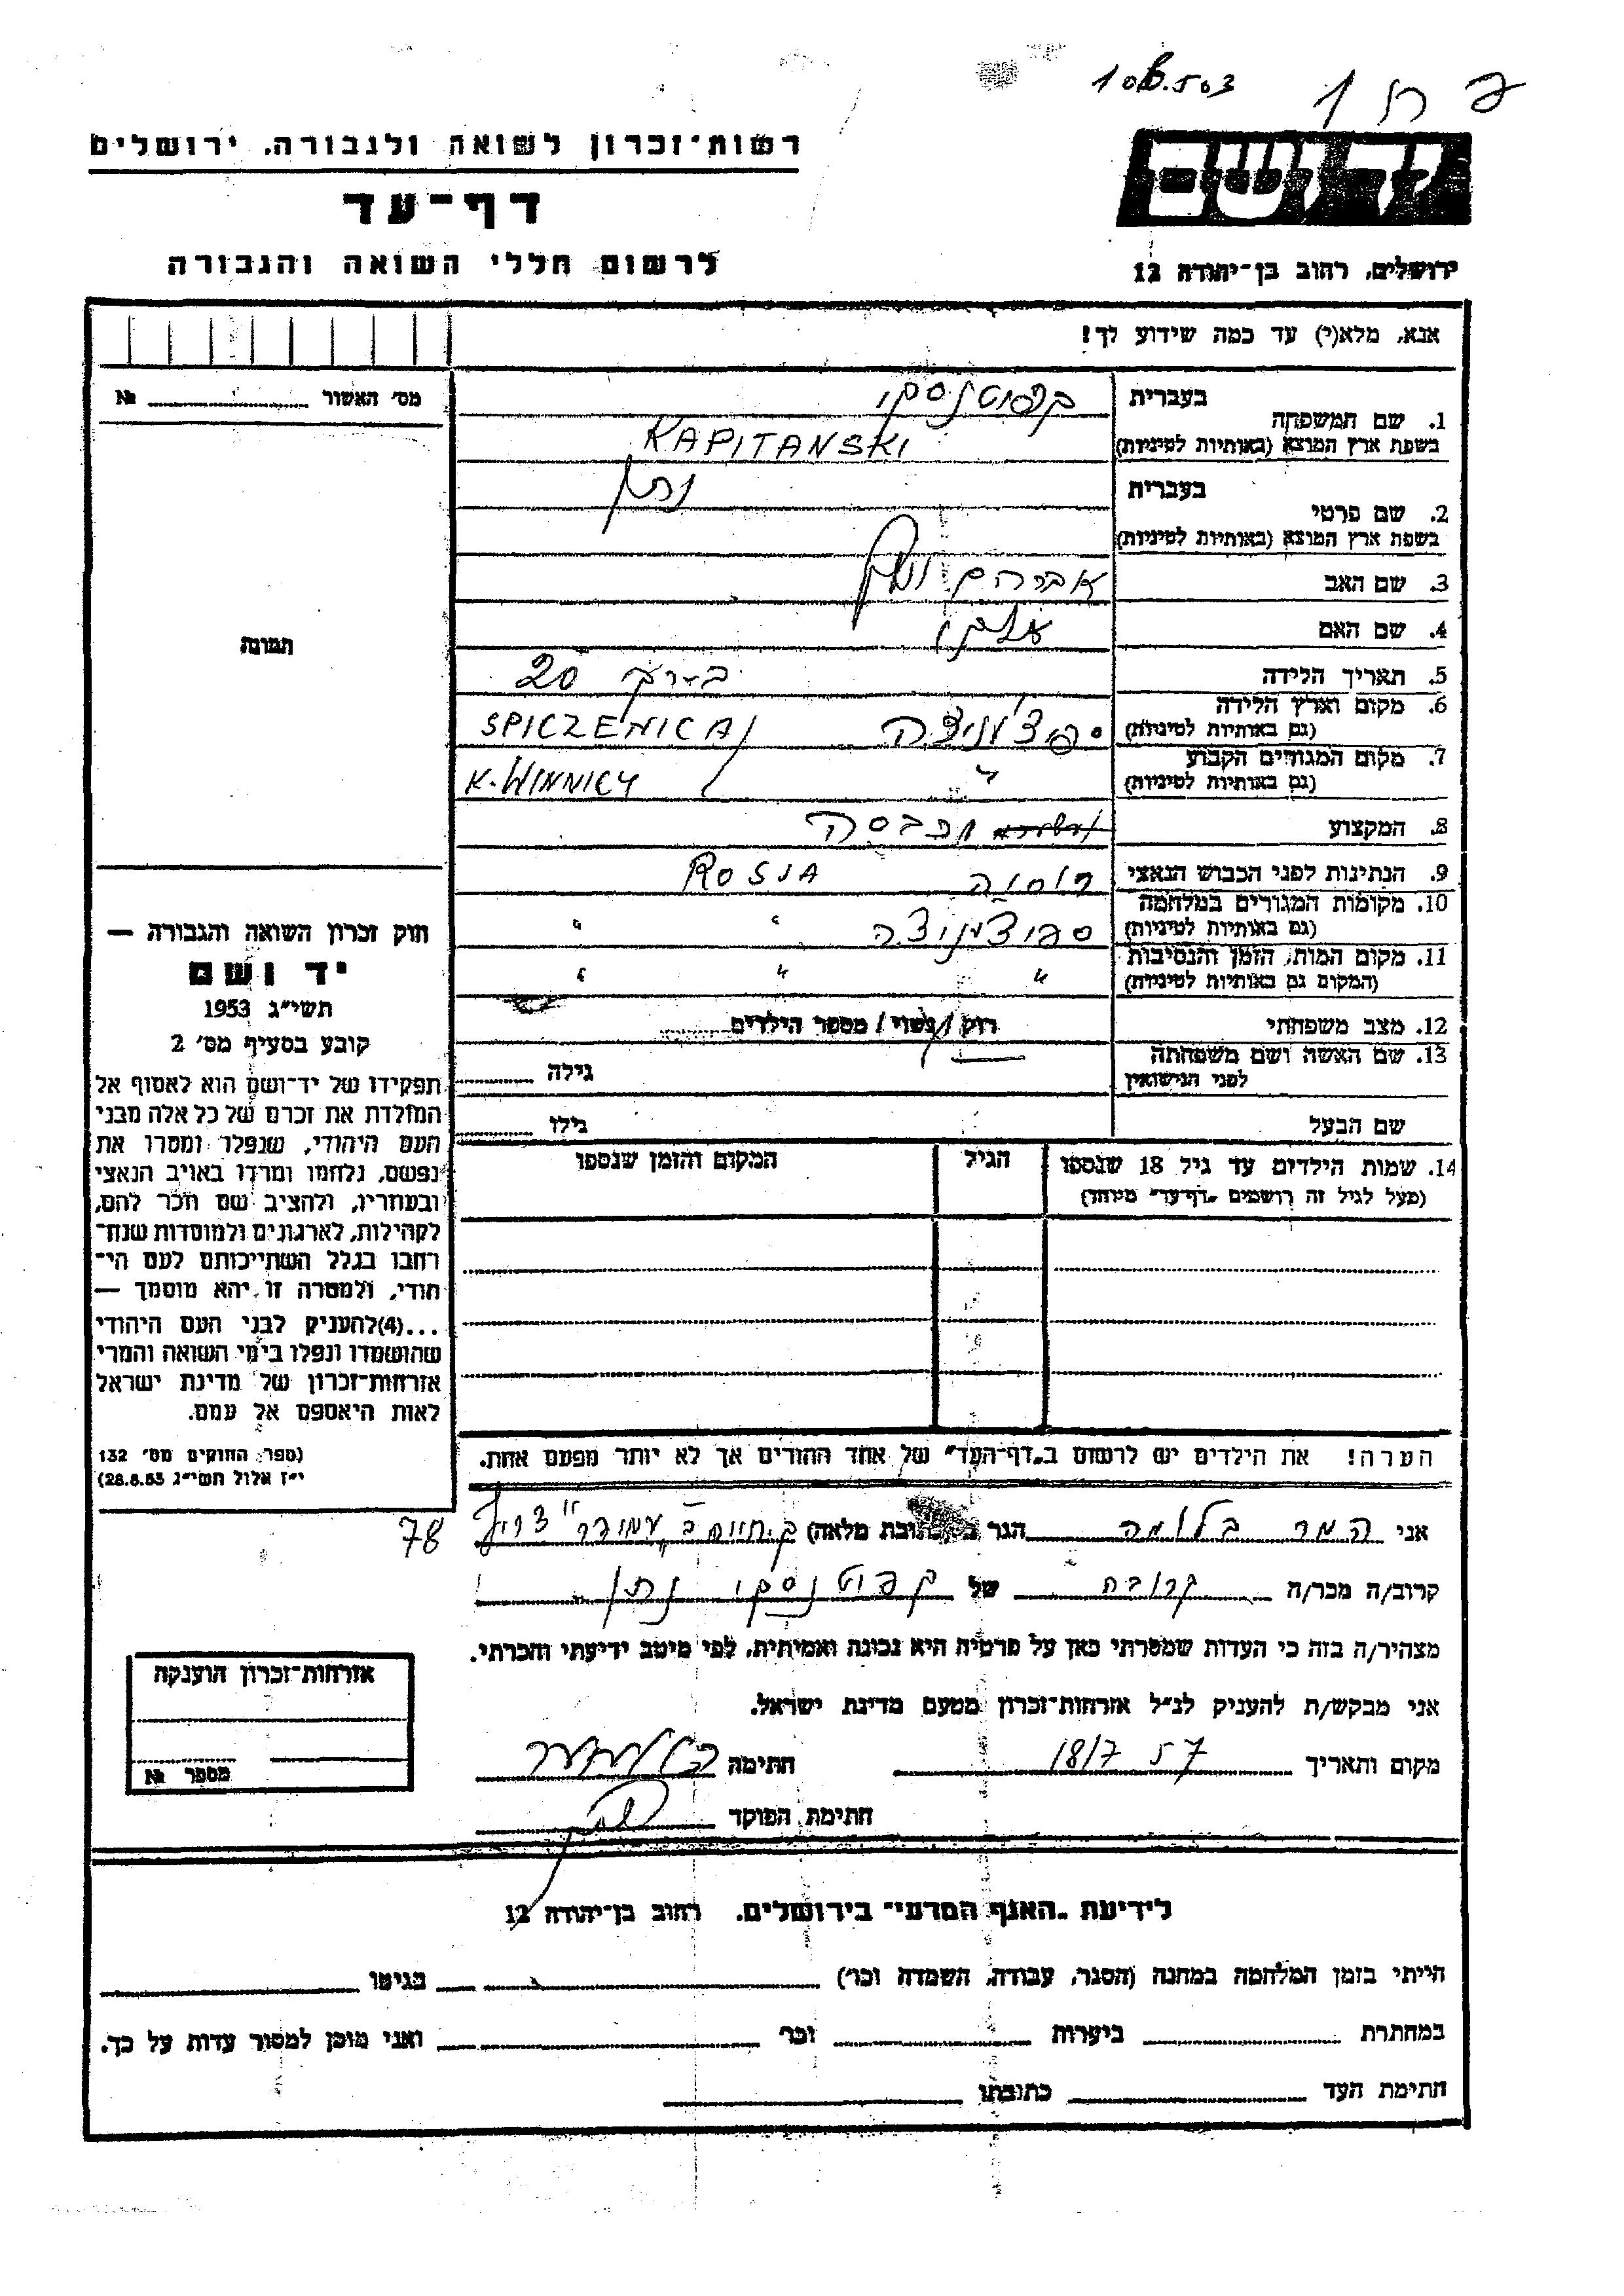 108.503
רשות-זכרון לשואה ולגבורה, ירושלים
ידושם
דף-עד
לרשום חללי השואה והגבורה
ירושלים, רחוב בן-יהודה 12
אנא, מלא(י) עד כמה שידוע לך!
מס' האשור № 
תמונה
1. שם המשפחה
בעברית קפיטנסקי
בשפת ארץ המוצא (באותיות לטיניות) KAPITANSKI
2. שם פרטי
בעברית נתן
בשפת ארץ המוצא (באותיות לטיניות)
3. שם האב אברהם
4. שם האם
5. תאריך הלידה 20
6. מקום וארץ הלידה
(גם באותיות לטיניות) ספיצ'ניצה SPICZENICA
7. מקום המגורים הקבוע
(גם באותיות לטיניות) " K. WINNICY
8. המקצוע
9. הנתינות לפני הכבוש הנאצי רוסיה ROSJA
10. מקומות המגורים במלחמה
(גם באותיות לטיניות) ספיצ'ניצה " "
11. מקום המות, הזמן והנסיבות
(המקום גם באותיות לטיניות) " " "
12. מצב משפחתי רווק / נשוי / מספר הילדים
13. שם האשה ושם משפחתה
לפני הנישואין גילה
שם הבעל גילו
14. שמות הילדים עד גיל 18 שנספו הגיל המקום והזמן שנספו
(מעל לגיל זה רושמים „דף-עד" מיוחד)
חוק זכרון השואה והגבורה —
יד ושם
תשי"ג 1953
קובע בסעיף מס' 2
תפקידו של יד-ושם הוא לאסוף אל
המולדת את זכרם של כל אלה מבני
העם היהודי, שנפלו ומסרו את
נפשם, נלחמו ומרדו באויב הנאצי
ובעוזריו, ולהציב שם וזכר להם,
לקהילות, לארגונים ולמוסדות שנח-
רבו בגלל השתייכותם לעם הי-
הודי, ולמטרה זו יהא מוסמך —
...(4)להעניק לבני העם היהודי
שהושמדו ונפלו בימי השואה והמרי
אזרחות-זכרון של מדינת ישראל
לאות היאספם אל עמם.
(ספר החוקים מס' 132
י"ז אלול תשי"ג 28.8.53)
הערה! את הילדים יש לרשום ב„דף-העד" של אחד ההורים אך לא יותר מפעם אחת.
אני המר בלומה הגר ב(כתובת מלאה) ק. חיים ב' צריף 78
קרוב/ה מכר/ה קרובה של קפיטנסקי נתן
מצהיר/ה בזה כי העדות שמסרתי כאן על פרטיה היא נכונה ואמיתית, לפי מיטב ידיעתי והכרתי.
אני מבקש/ת להעניק לנ"ל אזרחות-זכרון מטעם מדינת ישראל.
מקום ותאריך 18/7 57 חתימה
חתימת הפוקד
אזרחות-זכרון הוענקה
מספר №
לידיעת „האגף המדעי" בירושלים, רחוב בן-יהודה 12
הייתי בזמן המלחמה במחנה (הסגר, עבודה, השמדה וכו') בגיטו
במחתרת ביערות וכו' ואני מוכן למסור עדות על כך.
חתימת העד כתובתו